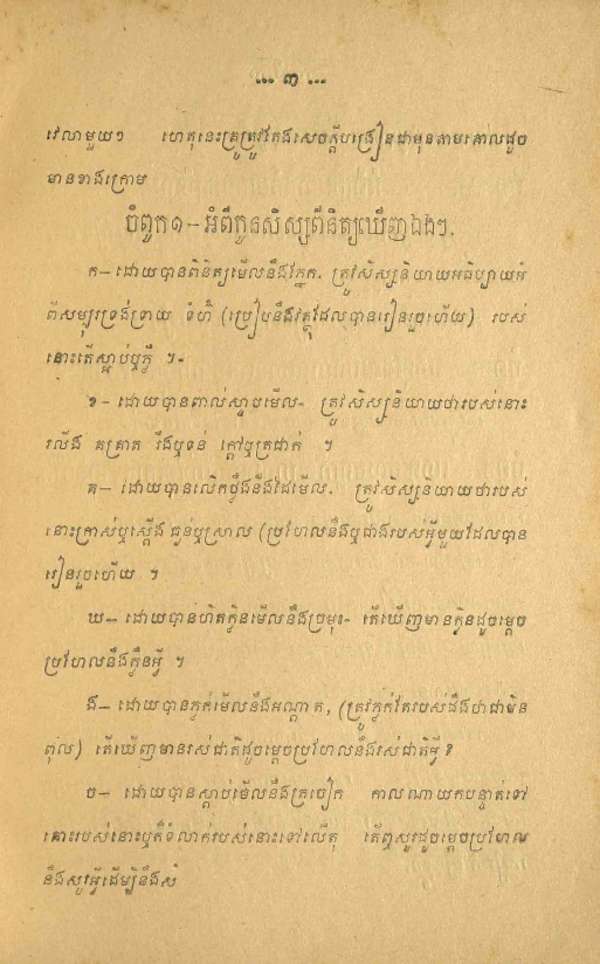 ... ៣ ...
វេលាមួយៗ ហេតុនេះគ្រូត្រូវតែងសេចក្ដីបង្រៀនជាមុនតាមគោលដូច
មានខាងក្រោម
ចំពូក១-អំពីកូនសិស្សពិនិត្យឃើញឯងៗ.
ក— ដោយបានពិនិត្យមើលនឹងភ្នែក. ត្រូវសិស្សនិយាយអធិប្បាយអំ
ពីសម្បុរទ្រង់ទ្រាយ ទំហំ (ប្រៀបនឹងវត្ថុដែលបានរៀនរួចហើយ) របស់
នោះតើស្អាប់ឬភ្លឺ ។-
ខ— ដោយបានពាល់ស្ទាបមើល- ត្រូវសិស្សនិយាយថារបស់នោះ
រលីង គគ្រាត រឹងឬទន់ ក្ដៅឬត្រជាក់ ។
គ— ដោយបានលើកថ្លឹងនឹងដៃមើល. ត្រូវសិស្សនិយាយថារបស់
នោះក្រាស់ឬស្ដើង ធ្ងន់ឬស្រាល (ប្រហែលនឹងឬជាងរបស់អ្វីមួយដែលបាន
រៀនរួចហើយ ។
ឃ— ដោយបានហិតក្លិនមើលនឹងច្រមុះ- តើឃើញមានក្លិនដូចម្ដេច
ប្រហែលនឹងក្លិនអ្វី ។
ង— ដោយបានភ្លក់មើលនឹងអណ្ដាត, (ត្រូវភ្លក់តែរបស់ដឹងថាជាមិន
ពុល) តើឃើញមានរស់ជាតិដូចម្ដេចប្រហែលនឹងរស់ជាតិអ្វី ?
ច— ដោយបានស្ដាប់មើលនឹងត្រចៀក កាលណាយកបន្ទាត់ទៅ
គោះរបស់នោះឬក៏ទំលាក់របស់នោះទៅលើតុ តើឮសូរដូចម្ដេចប្រហែល
នឹងសូរអ្វីដើម្បីនឹងសំ